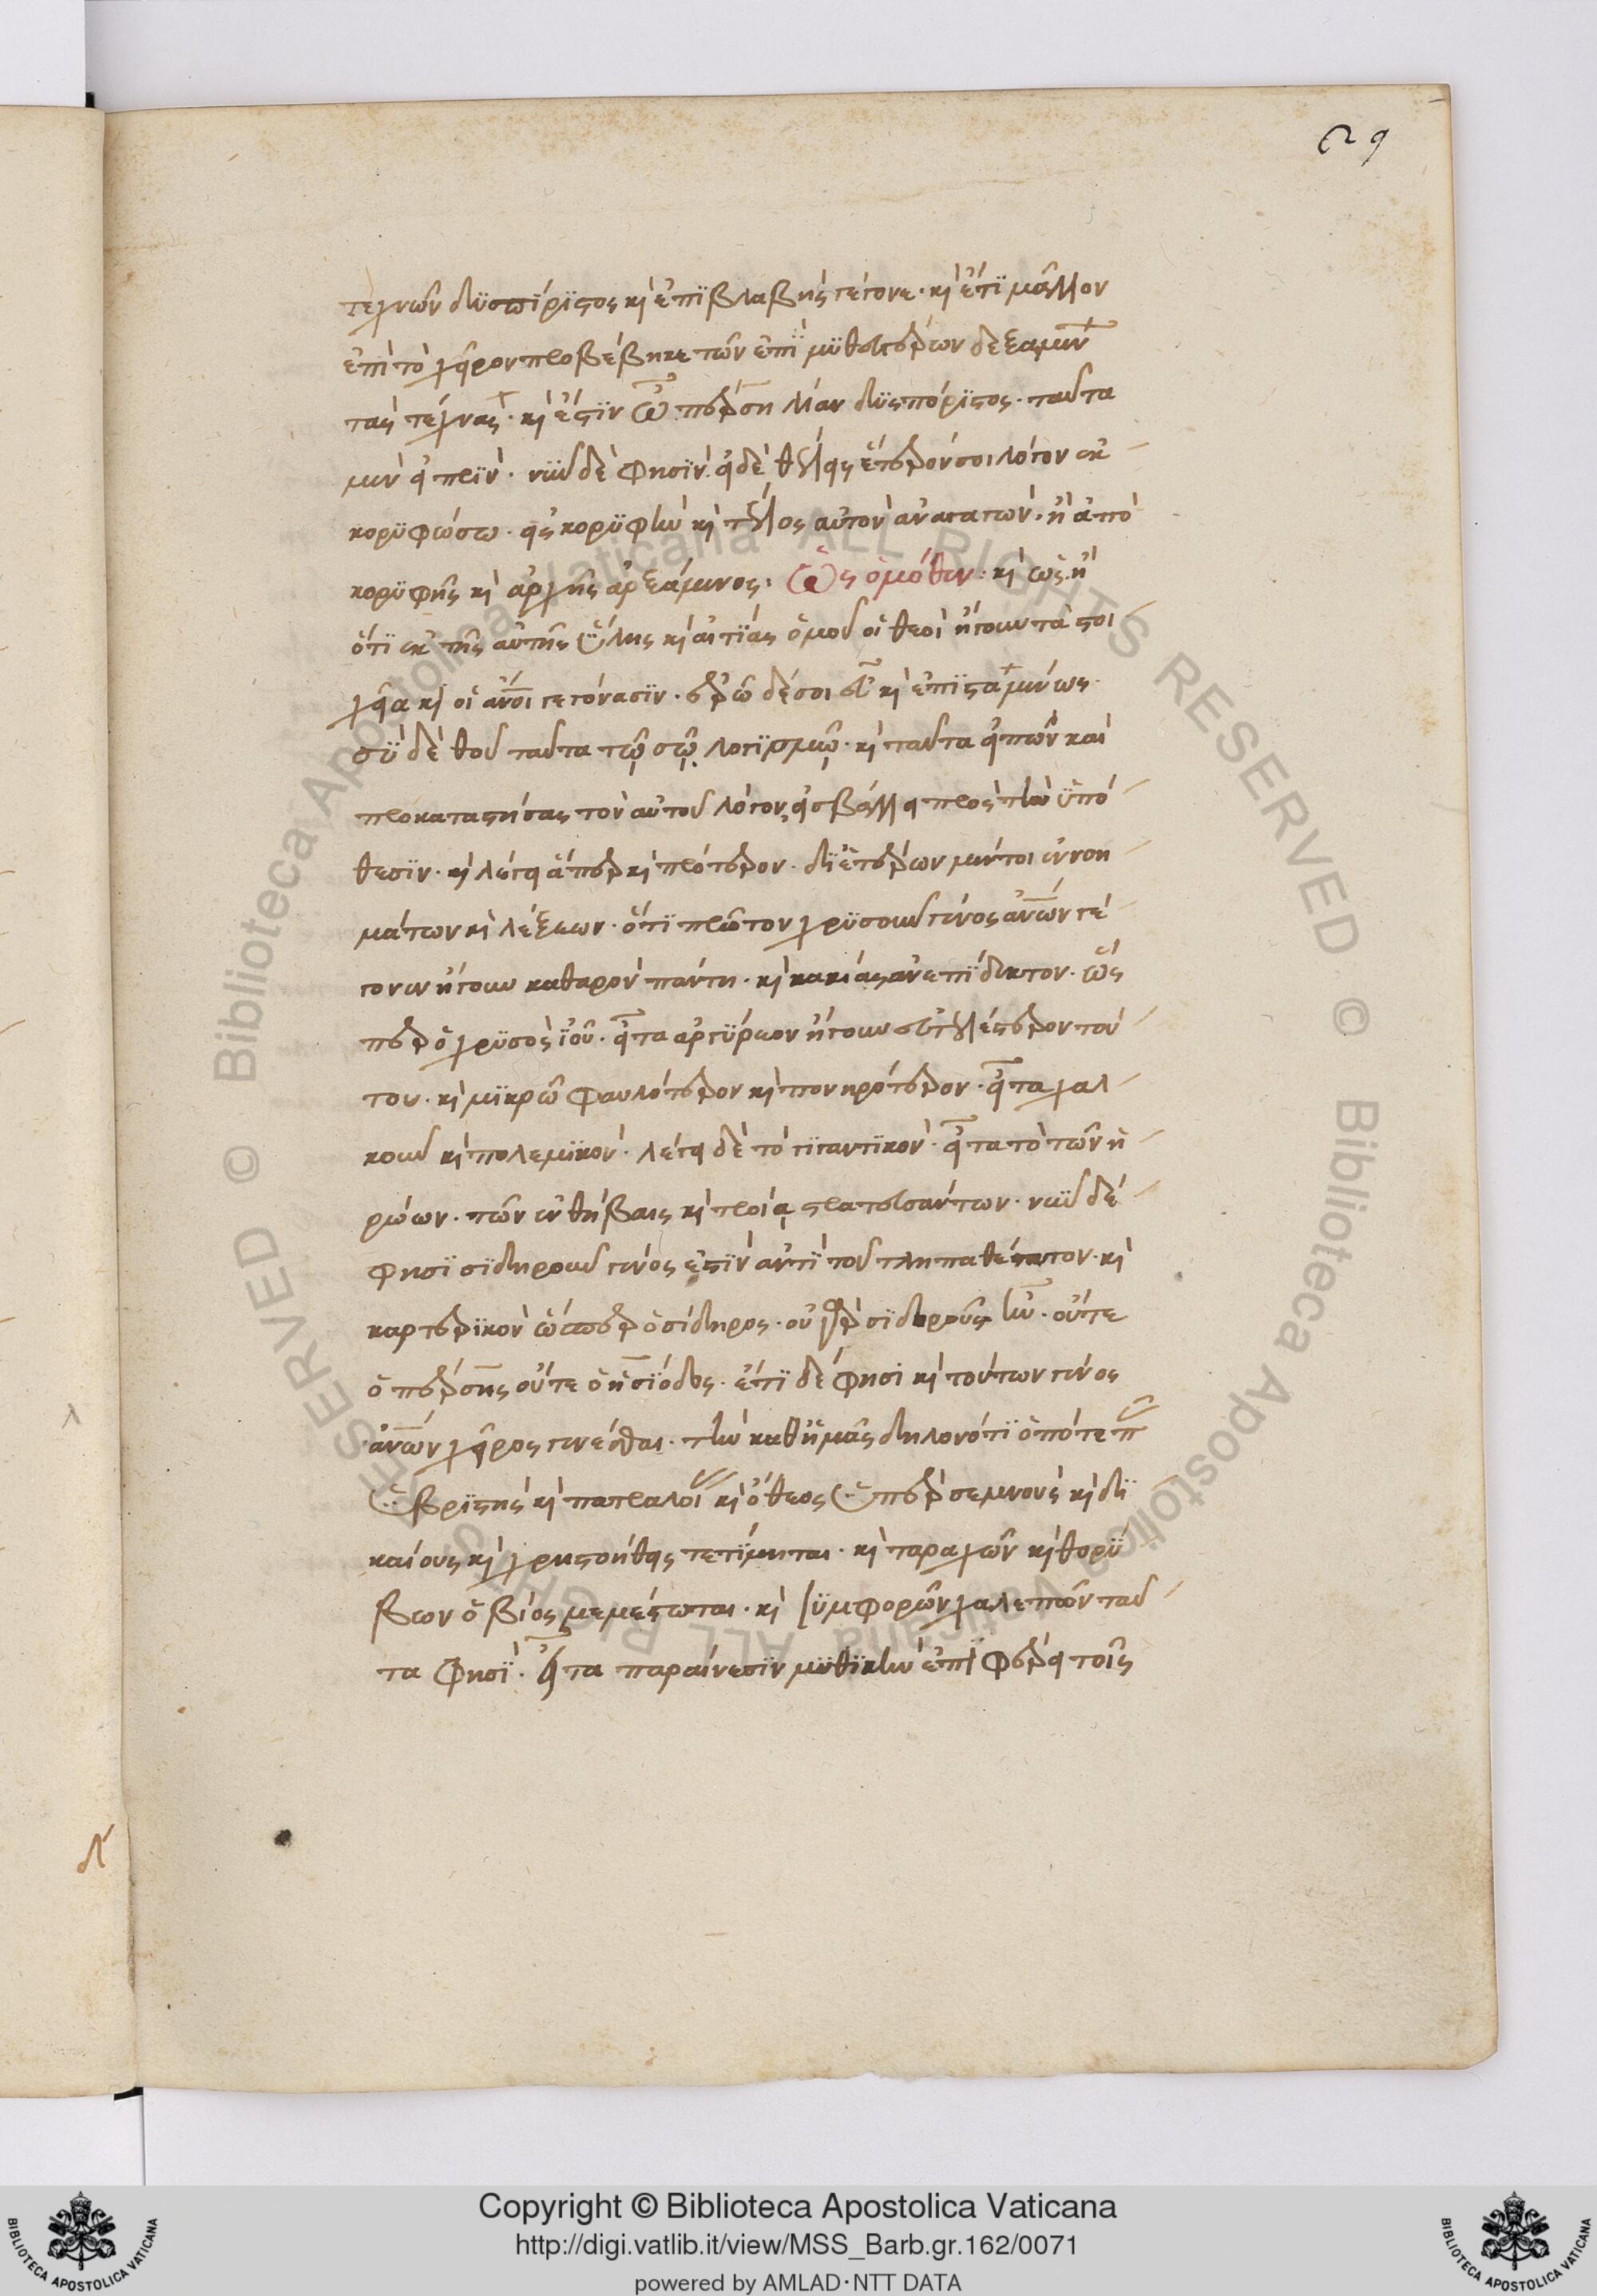 29
τεχνῶν δϋσπόρϊστος κὶ ἐπϊβλαβὴς γέγονε· κὶ ἔτϊ μᾶλλον
ἐπὶ τὸ χεῖρον προβέβηκε τῶν ἐπϊμϋθευτέρων δεξαμεν
τὰς τέχνας· κὶ ἔστϊν ὦ πέρση λίαν δϋσπόρϊστος· ταῦτα
μὲν εἶπεν· νῦν δὲ φησϊν. εἰ δὲ θέλεις ἕτερόν σοι λόγον ἐκ
κορϋφώσω· εἰς κορϋφὴν κὶ τέλος αὐτὸν ἀναγαγών· ἢ ἀπὸ
κορϋφῆς κὶ ἀρχῆς ἀρξάμενος. Ὡς ὁμόθεν· κὶ ὡς ἢ
ὅτϊ ἐκ τῆς αὐτῆς ὕλης κὶ αἰτίας ὁμοῦ οἱ θεοὶ ἤγουν τὰ στοι
χεῖα κὶ οἱ ἄνοι γεγόνασϊν· ἐρῶ δέ σοι εὖ κὶ ἐπϊσταμένως.
σὺ δὲ θοῦ ταῦτα τῷ σῷ λογϊσμῷ· κὶ ταῦτα εἰπὼν καὶ
προκαταστήσας τὸν αὐτοῦ λόγον, εἰσβάλλει πρὸς τὴν ὑπό
θεσϊν· κὶ λέγει ἅπερ κὶ πρότερον· δϊ ἑτέρων μέντοι ἐννοη
μάτων κὶ λέξεων· ὅτϊ πρῶτον χρϋσοῦν γένος ἀνων γέ
γονεν ἤγουν καθαρὸν πάντη· κὶ κακίας ἀνεπϊδεκτον· ὥς
περ ὁ χρϋσὸς ἰοῦ· εἶτα ἀργϋρεον ἤγουν εὐτελέστερον τού
του· κὶ μϊκρῶ φαυλότερον κὶ πονηρότερον· εἶτα χαλ
κοῦν κὶ πολεμϊκόν· λέγει δὲ τὸ γϊγαντϊκόν· εἶτα τὸ τῶν ἡ
ρώων· τῶν ἐν θήβαις κὶ τροία στρατευσάντων· νῦν δέ
φησϊ σϊδηροῦν γένος ἐστϊν ἀντὶ τοῦ τληπαθέστατον· κὶ
καρτερϊκὸν ὥσπερ ὁ σίδηρος· οὐ γὰρ σϊδηροῦς ἦν· οὔτε
ὁ πέρσης οὔτε ὁ ἡσϊόδος· ἔτϊ δέ φησι κὶ τούτων γένος
ἀνων χεῖρος γενέσθαι· τὴν καθ ἡμᾶς δηλονότϊ ὁπότε π
ὑβρϊστὴς κὶ πατραλοί κὶ ὄθεος ὑπὲρ σεμνοὺς κὶ δϊ
καίους κὶ χρηστοήθεις τετίμηται· κὶ ταραχῶν κὶ θορϋ
βων ὁ βίος μεμέστωται· κὶ σϋμφορῶν χαλεπῶν ταῦ
τα φησϊ· εἶτα παραίνεσϊν μϋθϊκὴν ἐπϊφέρει τοῖς
λ
Copyright © Biblioteca Apostolica Vaticana
http://digi.vatlib.it/view/MSS_Barb.gr.162/0071
powered by AMLAD·NTT DATA
BIBLIOTECA APOSTOLICA VATICANA
BIBLIOTECA APOSTOLICA VATICANA
© Biblioteca Apostolica Vaticana ALL RIGHTS RESERVED
© Biblioteca Apostolica Vaticana ALL RIGHTS RESERVED